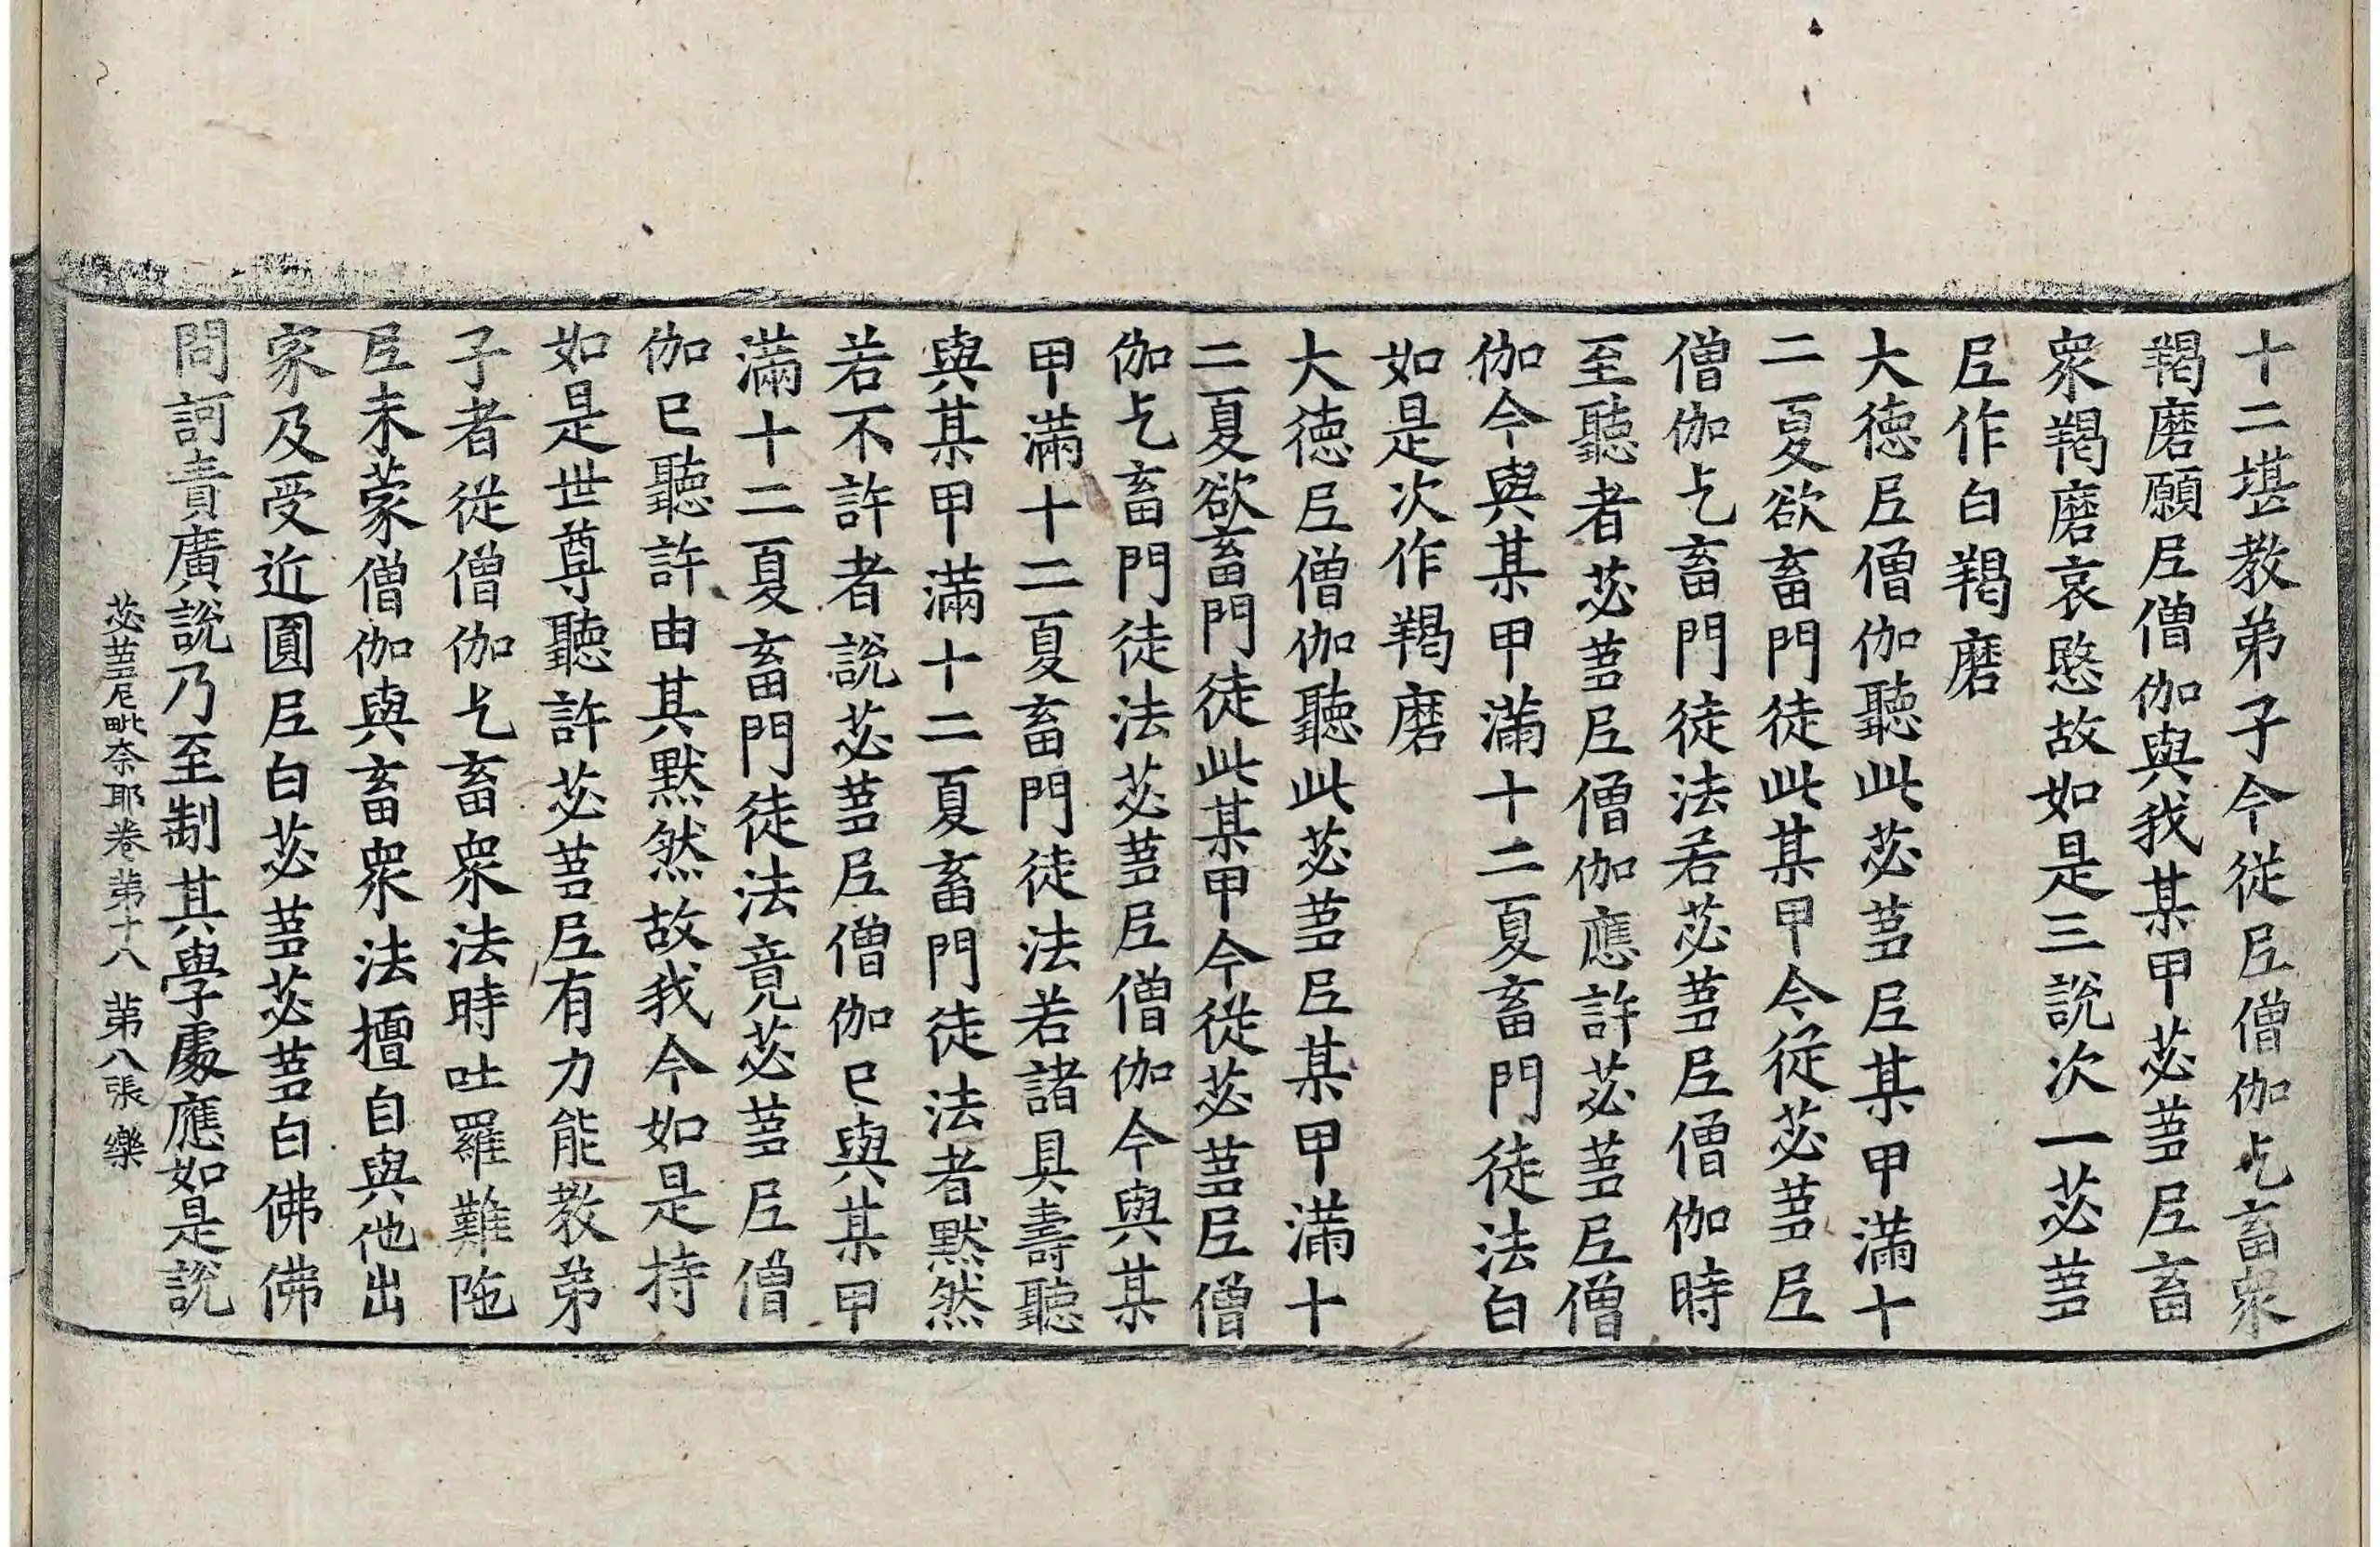 十二堪教弟子今從尼僧伽乞畜衆
羯磨願尼僧伽與我某甲苾蒭尼畜
衆羯磨哀愍故如是三說次一苾蒭
尼作白羯磨
大徳尼僧伽聽此苾蒭尼某甲滿十
二夏欲畜門徒此某甲今從苾蒭尼
僧伽乞畜門徒法若苾蒭尼僧伽時
至聽者苾蒭尼僧伽應許苾蒭尼僧
伽今與某甲滿十二夏畜門徒法白
如是次作羯磨
大徳尼僧伽聽此苾蒭尼某甲滿十
二夏欲畜門徒此某甲今從苾蒭尼僧
伽乞畜門徒法苾蒭尼僧伽今與某
甲滿十二夏畜門徒法若諸具壽聽
與某甲滿十二夏畜門徒法者默然
若不許者說苾蒭尼僧伽已與某甲
滿十二夏畜門徒法竟苾蒭尼僧
伽已聽許由其默然故我今如是持
如是世尊聽許苾蒭尼有力能教弟
子者從僧伽乞畜衆法時吐羅難陁
尼未蒙僧伽與畜衆法擅自與他出
家及受近圓尼白苾蒭苾蒭白佛佛
問訶責廣說乃至制其學處應如是說
苾蒭尼毗奈耶卷第十八 第八張 樂